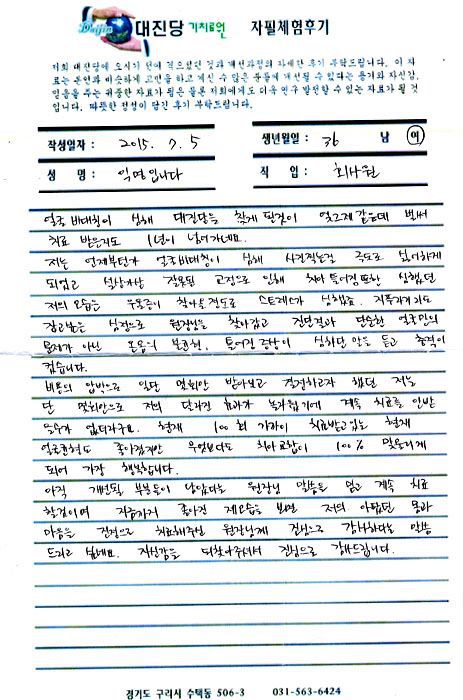 Daejin 대진당 가치료원 자필체험후기
저희 대진당에 오시기 전에 겪으셨던 것과 개선과정의 자세한 후기 부탁드립니다. 이 자
료는 본인과 비슷하게 고민을 하고 계신 수 많은 분들께 개선될 수 있다는 용기와 자신감,
믿음을 주는 귀중한 자료가 됨은 물론 저희에게도 더욱 연구 발전할 수 있는 자료가 될 것
입니다. 따뜻한 정성이 담긴 후기 부탁드립니다.
작성일자 : 2015. 7. 5 생년월일 : 36 남 여
성 명 : 익명입니다 직 업 : 회사원
얼굴 비대칭이 심해 대진당을 찾게 된것이 엊그제 같은데 벌써
치료 받은지도 1년이 넘어가네요.
저는 언제부턴가 얼굴비대칭이 심해 사진찍는걸 극도로 싫어하게
되었고 설상가상 잘못된 교정으로 인해 치아 틀어짐 또한 심했던
저의 모습은 우울증이 찾아올정도로 스트레스가 심했죠. 지푸라기라도
잡고싶은 심정으로 원장님을 찾아갔고 진단결과 단순한 얼굴만의
문제가 아닌 온몸의 불균형, 틀어진 증상이 심하단 말을 듣고 충격이
컸습니다.
비용의 압박으로 일단 몇회만 받아보고 결정하고자 했던 저는
단 몇회만으로 저의 달라진 효과가 놀라웠기에 계속 치료를 안받
을수가 없더라구요. 현재 100회 가까이 치료받고있는 현재
얼굴균형도 좋아졌지만 무엇보다도 치아교합이 100% 맞물리게
되어 가장 행복합니다.
아직 개선될 부분들이 남았다는 원장님 말씀을 믿고 계속 치료
할것이며 지금까지 좋아진 제모습을 보면 저의 아팠던 몸과
마음을 진정으로 치료해주신 원장님께 진심으로 감사하다는 말씀
드리고 싶네요. 자신감을 되찾아주셔서 진심으로 감사드립니다.
경기도 구리시 수택동 506-3 031-563-6424